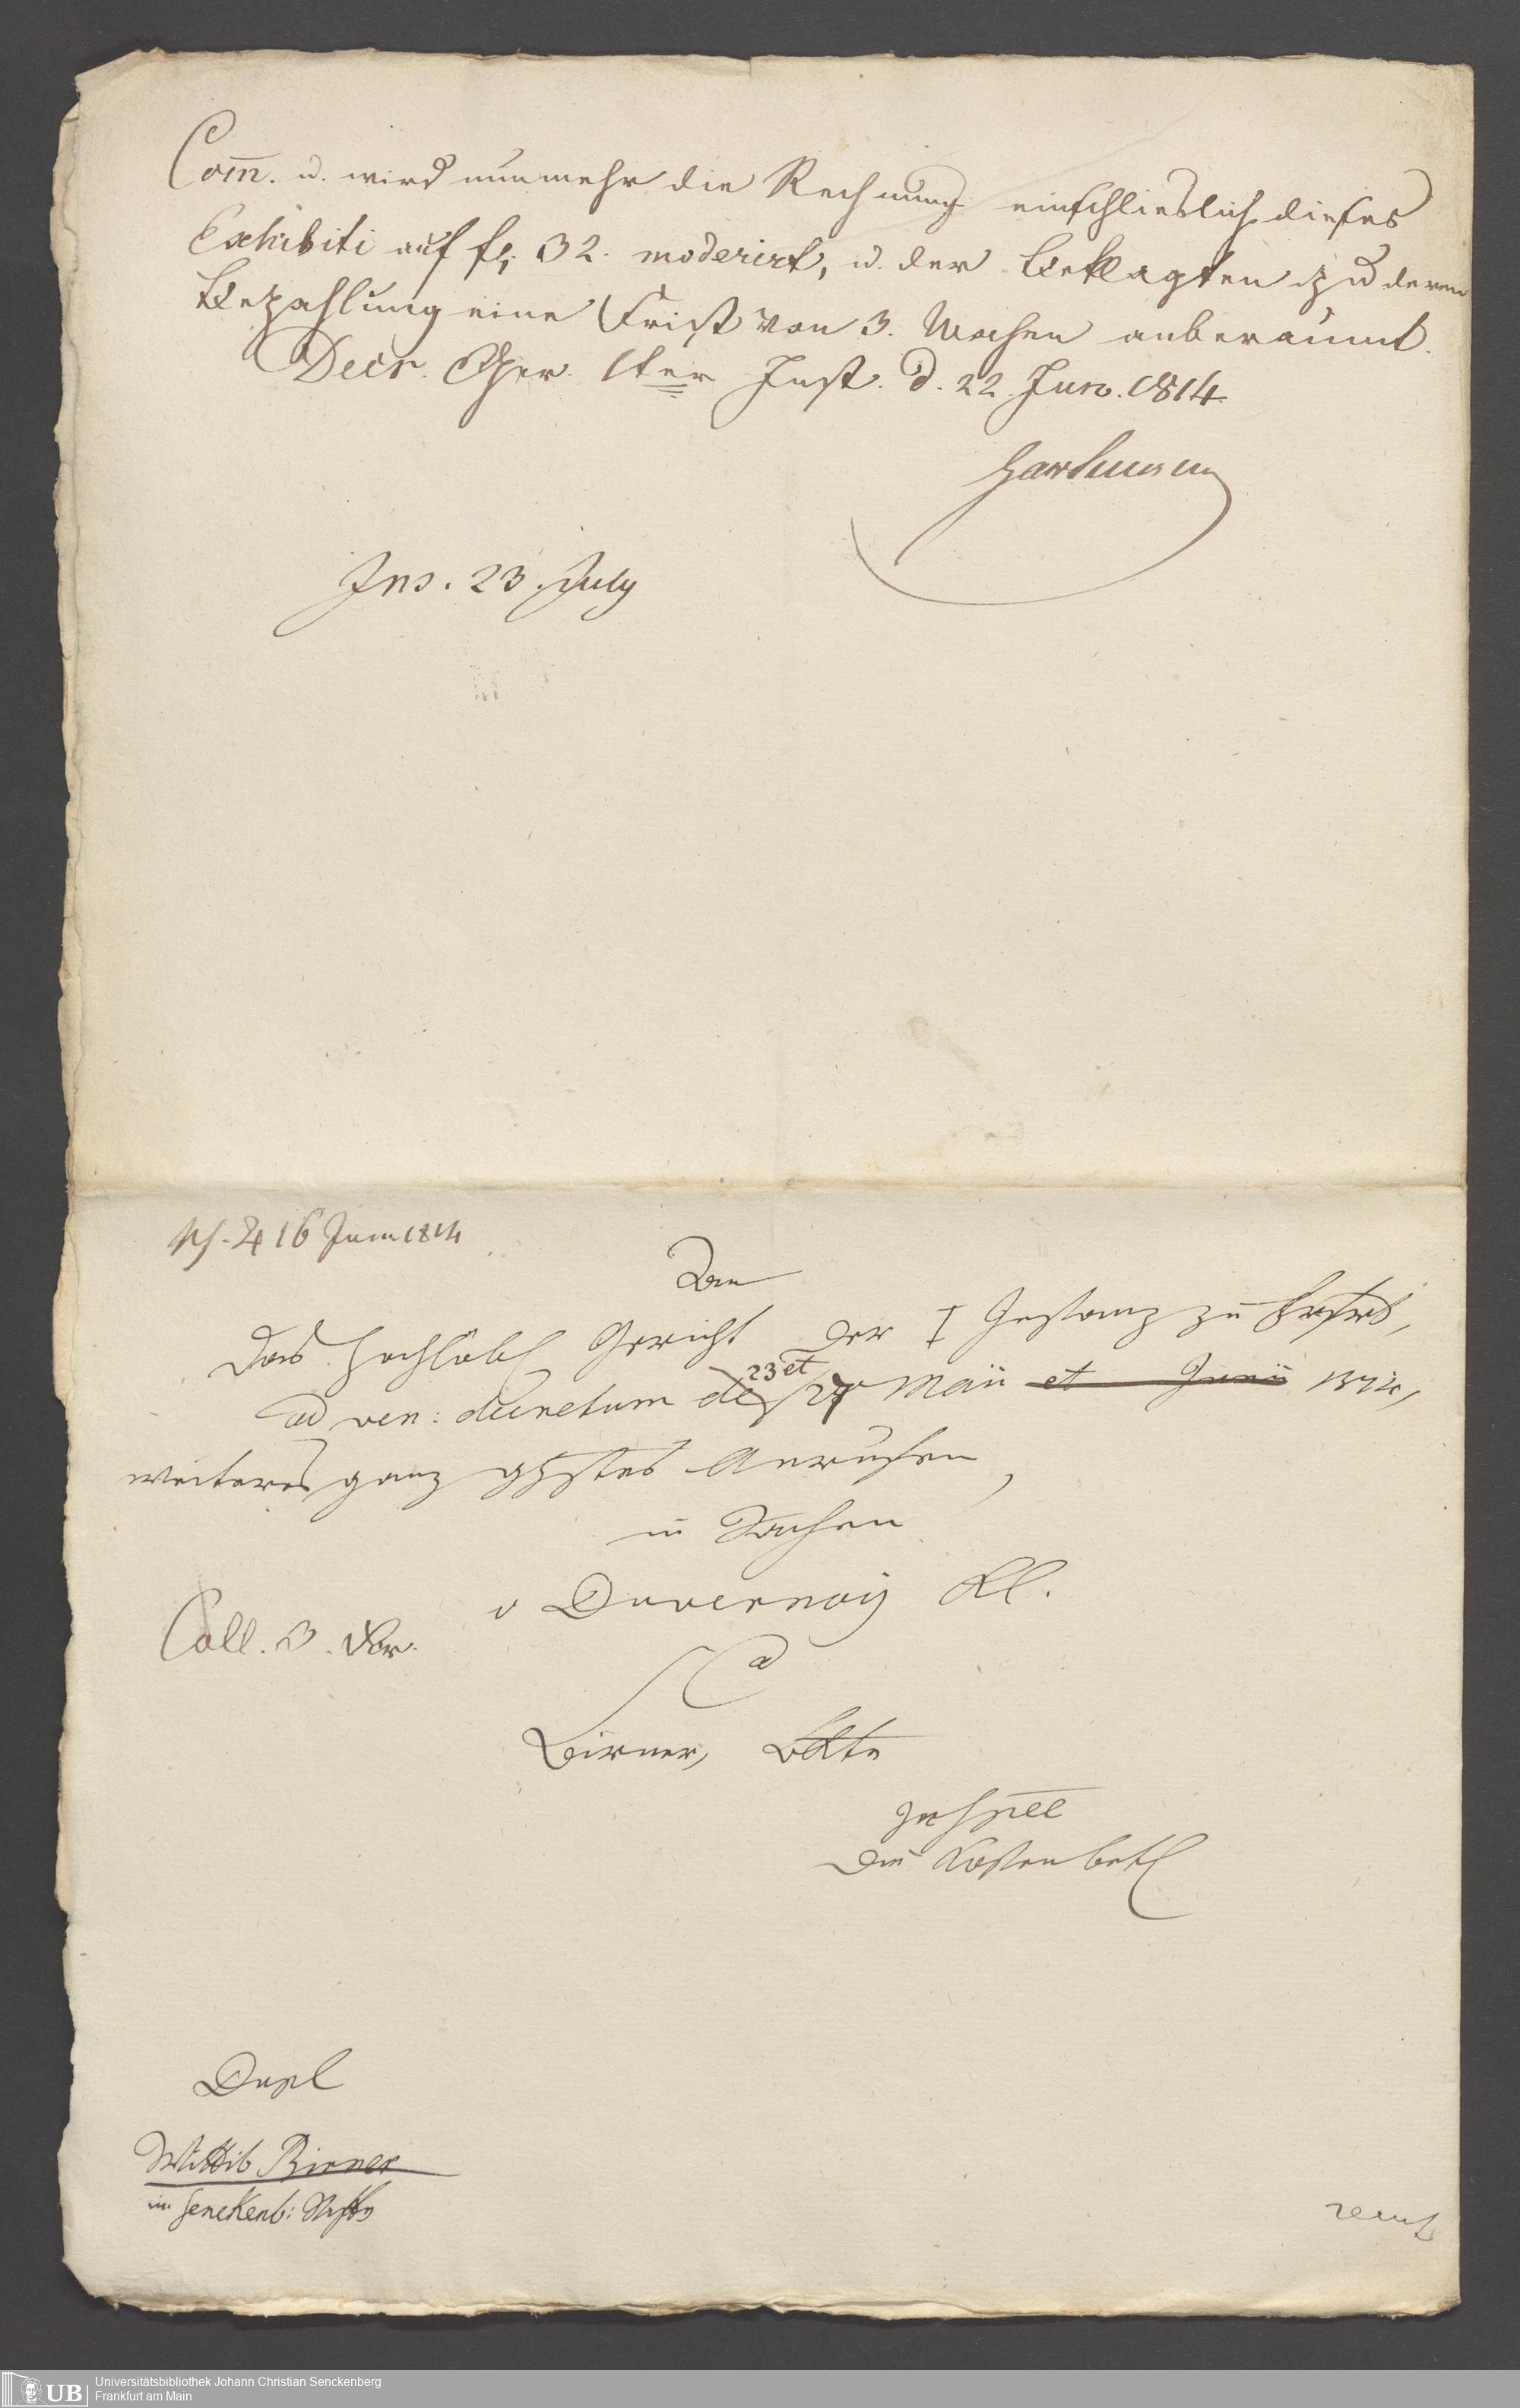 Com̄. u. wird nunmehr die Rechnung einschlieslich dieses
Exhibiti auf fl. 32. moderirt, u. der Beklagten zu deren
Bezahlung eine Frist von 3. Wochen anberaumt.
Decr. Ger. 1ter Inst. d. 22. Jun. 1814.
Ins. 23. July
16 Juni 1814
An
das hochlöbl Gericht der I Instanz zu
23 et
ad ven: decretum de 27 Maii et Junii 1814,
weiteres ganz Anrufen,
in Sachen
v Duvernoy Kl.
Coll. 3. Xer.
Ca
Birner, Bklte
die Kosten betl
Dupl
Wittib Birner
im Senckenb: Stifte
UB
Universitätsbibliothek Johann Christian Senckenberg
Frankfurt am Main